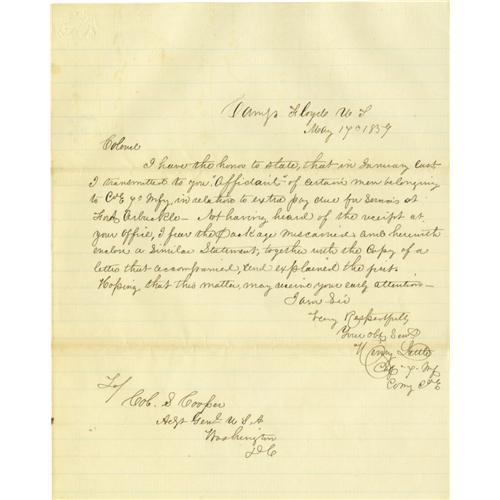 Camp Floyd U T
May 17th 1859
Colonel
I have the honor to state, that in January last
I transmitted to you "Affidavit" of certain men belonging
to Co E 7th Infy, in relation to extra pay due for services at
Fort Arbuckle - Not having heard of the receipt at
your Office, I fear the package miscarried and herewith
enclose a similar Statement, together with the Copy of a
letter that accompanied, and explained the first.
Hoping that this matter, may receive your early attention -
I am Sir
Very Respectfully
Your Obt Servt
Henry Little
Capt 7th Infy
Comg Co E
To/
Col. S Cooper
Adjt Genl U S A
Washington
D C